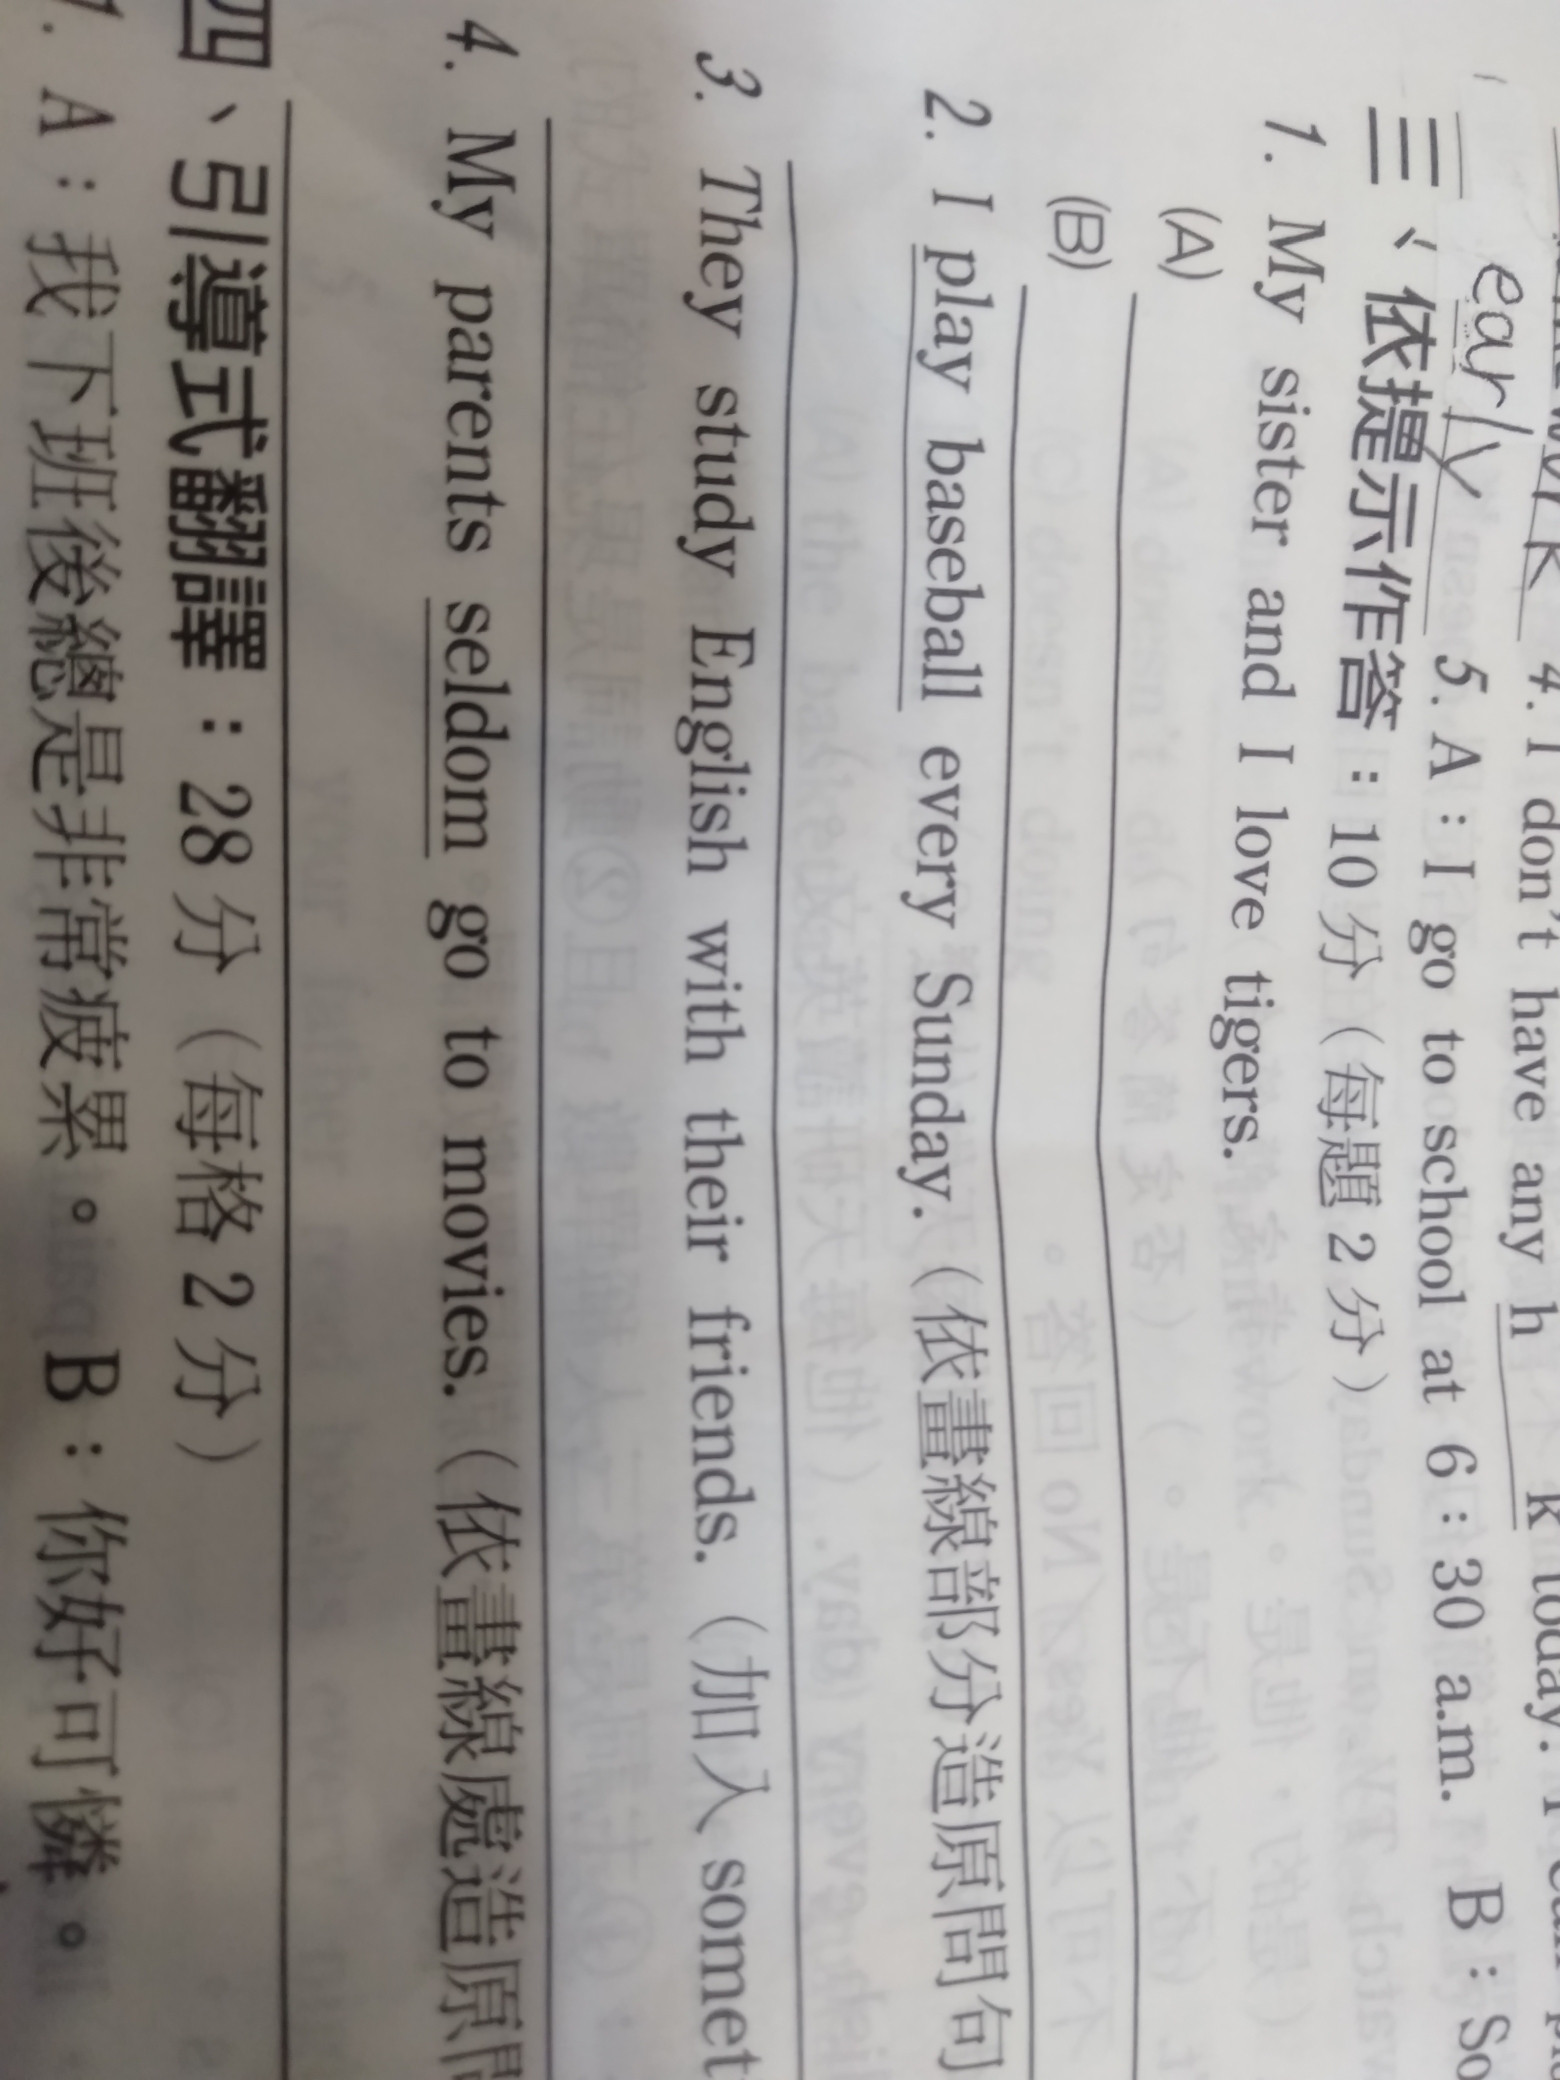 4. I don't have any h k today.
early 5. A：I go to school at 6：30 a.m. B：So
三、依提示作答：10分（每題2分）
1. My sister and I love tigers.
(A)
(B)
2. I play baseball every Sunday.（依畫線部分造原問句
3. They study English with their friends.（加入 somet
4. My parents seldom go to movies.（依畫線處造原問
四、引導式翻譯：28分（每格2分）
1. A：我下班後總是非常疲累。 B：你好可憐。